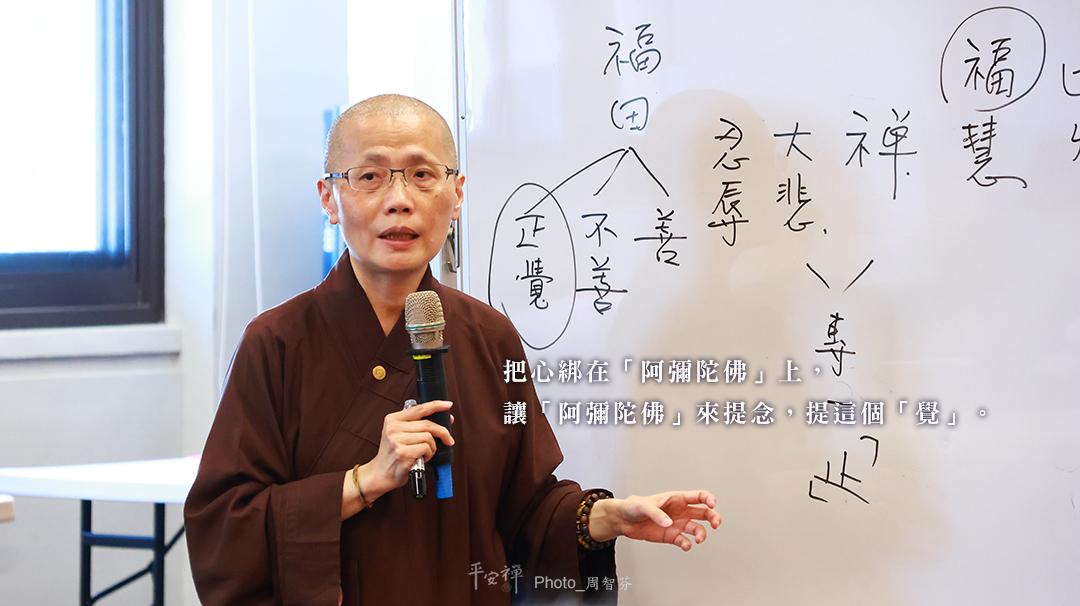 福田
正覺
不善
善
忍辱
大悲
禪
福慧
專
把心綁在「阿彌陀佛」上，
讓「阿彌陀佛」來提念，提這個「覺」。
平安禪
Photo_周智芬